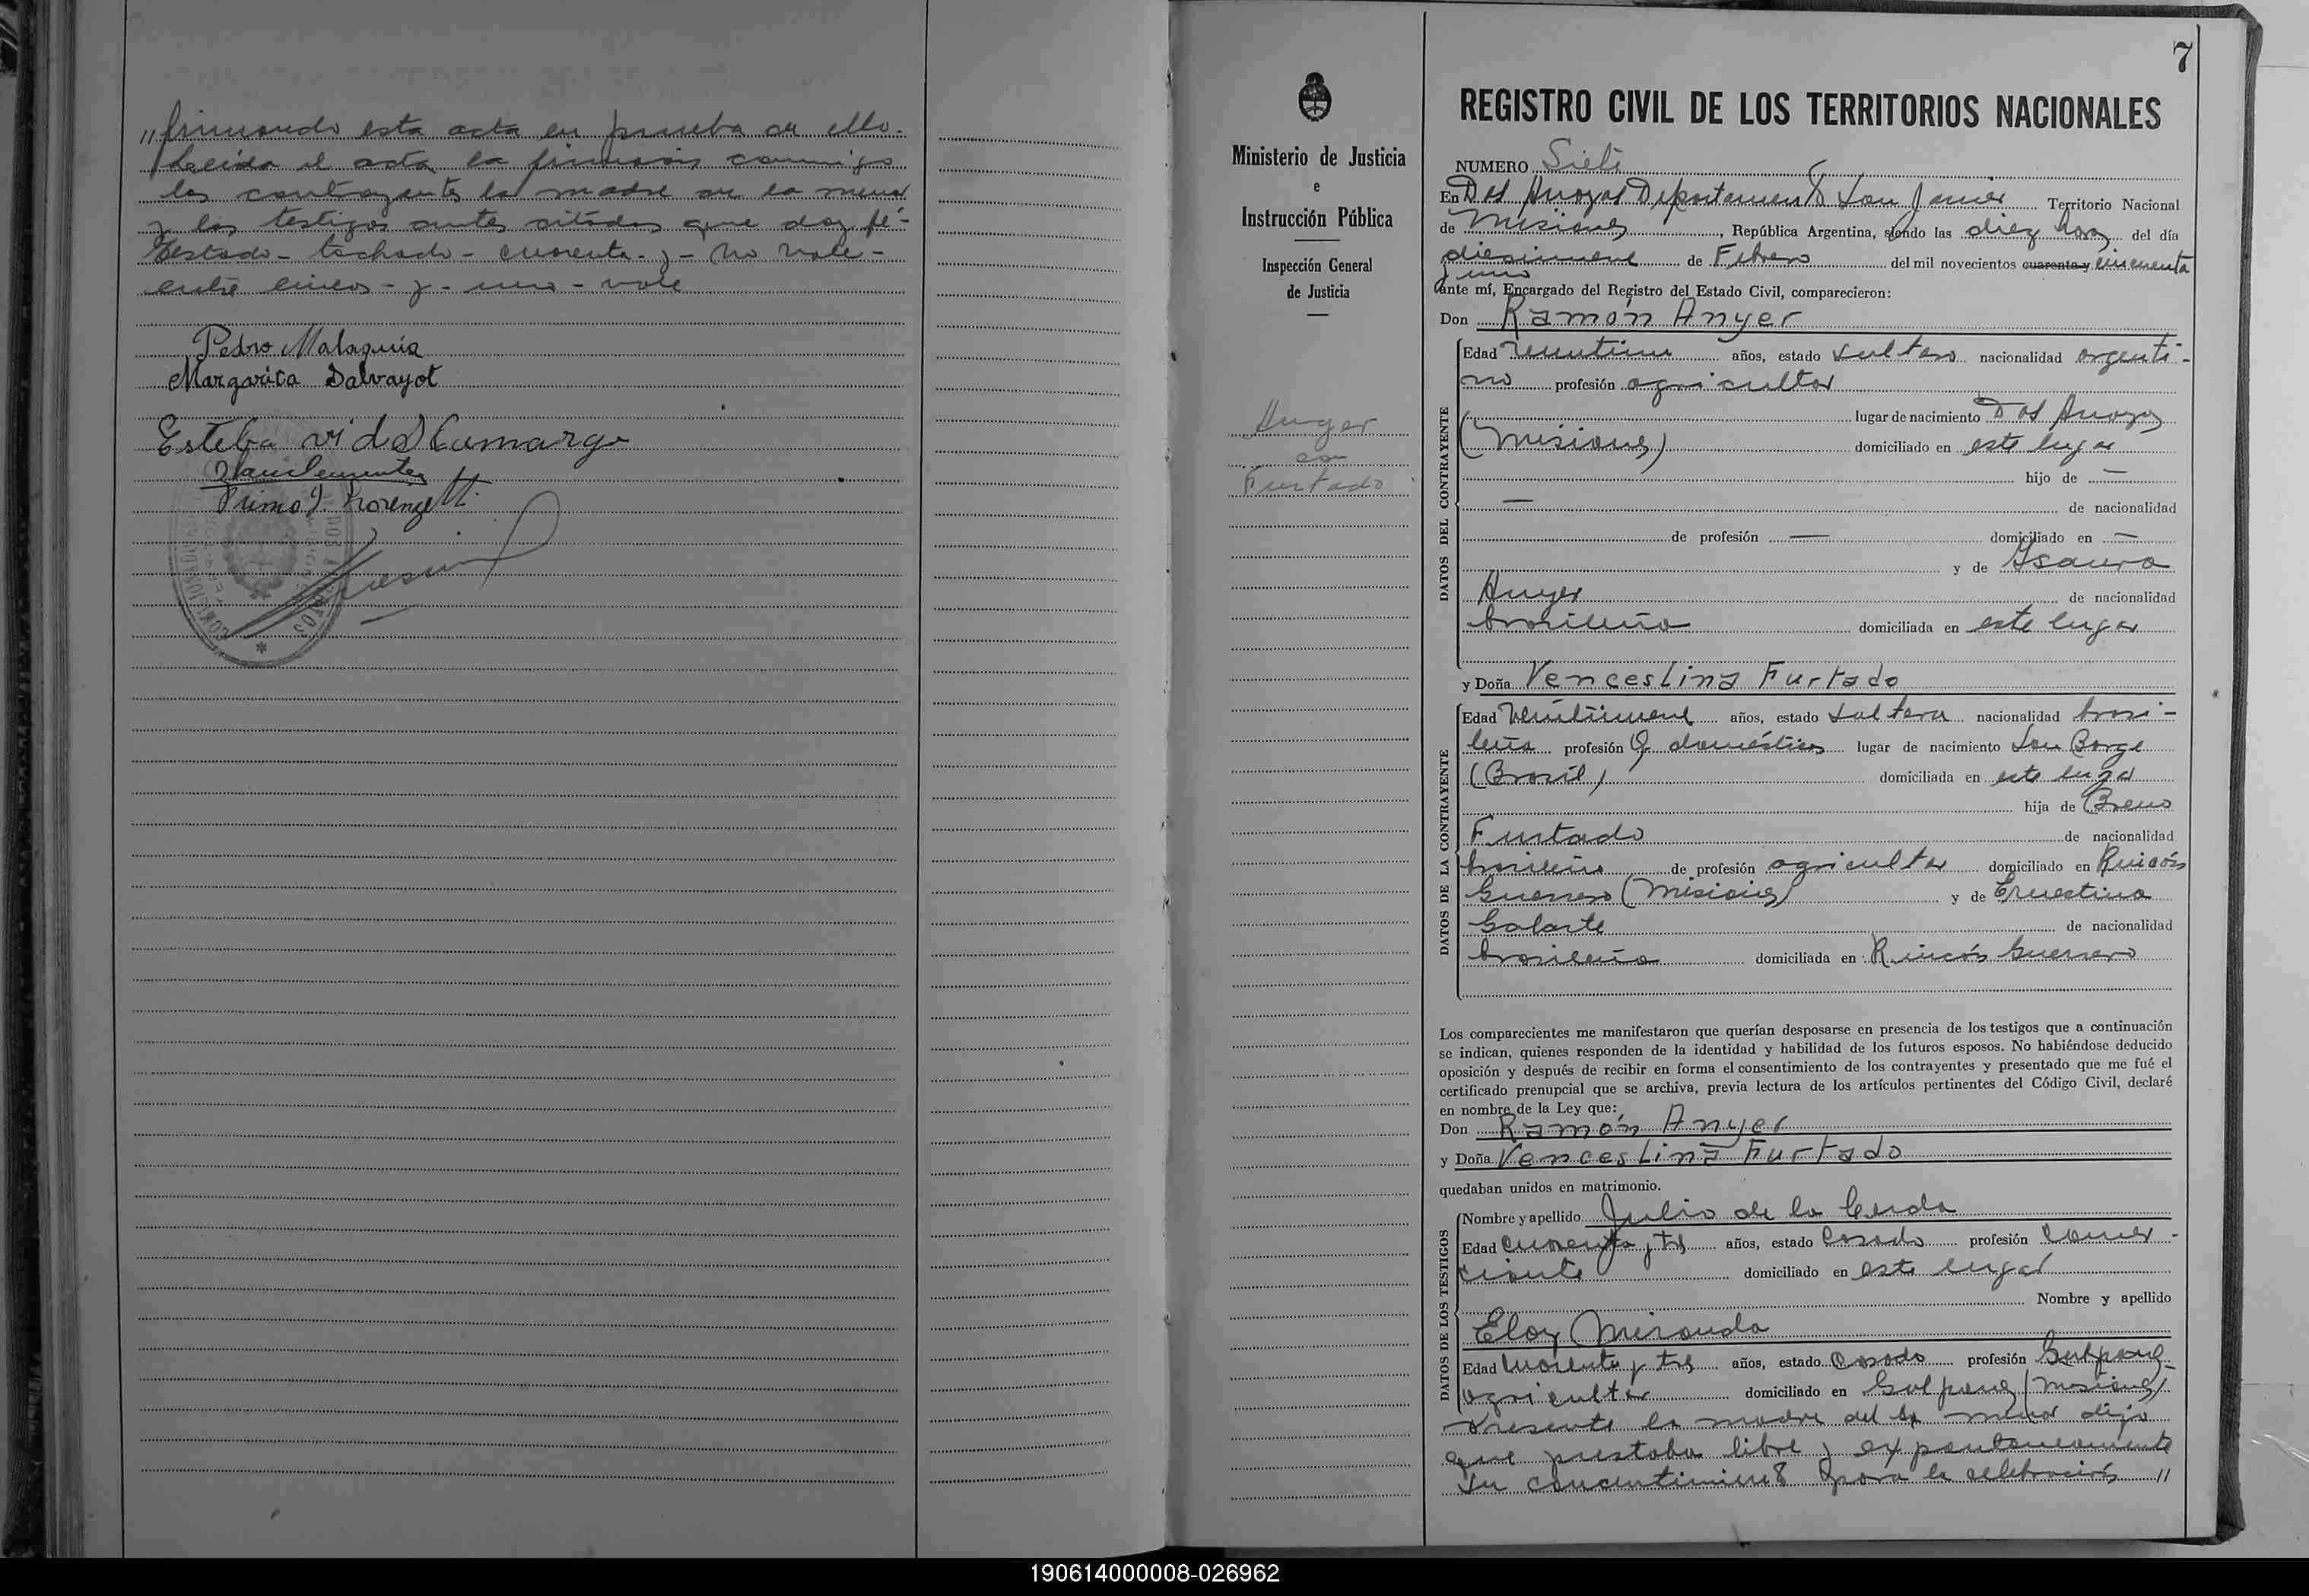 "firmando esta acta en prueba de ello.
Leída el acta la firmaron conmigo
los contrayentes la madre de la menor
y los testigos antes citados que doy fé-
Testado - tachado - cuarenta - y - No vale -
entre lineas - y - uno - vale
Pedro Malaquia
Margarita Dalvayot
Esteba vi de Camargo
Primo J. Lorenzetti
Ministerio de Justicia
e
Instrucción Pública
Inspección General
de Justicia
Anyer
con
Furtado
7
REGISTRO CIVIL DE LOS TERRITORIOS NACIONALES
NUMERO Siete
En Dos Arroyos Departamento San Javier Territorio Nacional
de Misiones, República Argentina, siendo las diez horas del día
diecinueve de Febrero del mil novecientos cuarenta y cincuenta
y uno
ante mí, Encargado del Registro del Estado Civil, comparecieron:
Don Ramón Anyer
DATOS DEL CONTRAYENTE
Edad años, estado soltero nacionalidad argenti-
no profesión agricultor
lugar de nacimiento Dos Arroyos
(Misiones) domiciliado en este lugar
hijo de —
— de nacionalidad
de profesión — domiciliado en —
y de Isaura
Anyer de nacionalidad
brasileña domiciliada en este lugar
y Doña Venceslina Furtado
DATOS DE LA CONTRAYENTE
Edad años, estado soltera nacionalidad brasi-
leña profesión Q. domésticos lugar de nacimiento San Borge
(Brasil) domiciliada en este lugar
hija de Breno
Furtado de nacionalidad
brasileño de profesión agricultor domiciliado en Rincón
Guerrero (Misiones) y de Ernestina
Golarte de nacionalidad
brasileña domiciliada en Rincón Guerrero
Los comparecientes me manifestaron que querían desposarse en presencia de los testigos que a continuación
se indican, quienes responden de la identidad y habilidad de los futuros esposos. No habiéndose deducido
oposición y después de recibir en forma el consentimiento de los contrayentes y presentado que me fué el
certificado prenupcial que se archiva, previa lectura de los artículos pertinentes del Código Civil, declaré
en nombre de la Ley que:
Don Ramón Anyer
y Doña Venceslina Furtado
quedaban unidos en matrimonio.
DATOS DE LOS TESTIGOS
Nombre y apellido Julio de la Cerda
Edad cuarenta y tres años, estado casado profesión comer-
ciante domiciliado en este lugar
Nombre y apellido
Eloy Miranda
Edad cuarenta y tres años, estado casado profesión
agricultor domiciliado en (Misiones)
Presente la madre del la menor dijo
que prestaba libre y expontaneamente
su concentimiento para la celebración "
190614000008-026962